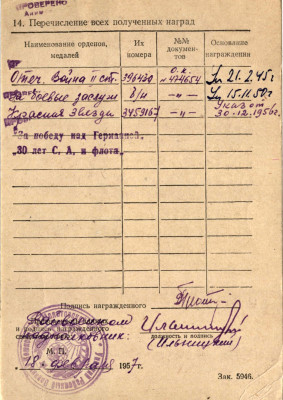 ПРОВЕРЕНО
14. Перечисление всех полученных наград
Наименование орденов, медалей
Их номера
№№ документов
Основание награждения
Отеч. Война II ст. 396420 О.К. № 474654 Ук. 21.2.45 г.
За боевые заслуг б/н —„— Ук. 15.11.50 г.
Красная Звезда 3459167 —„— Указ от 30.12.1956 г.
За победу над Германией.
„30 лет С. А. и флота„
Подпись награжденного
должность и подпись
М.П.
„18" февраля 1957 г.
Зак. 5946.